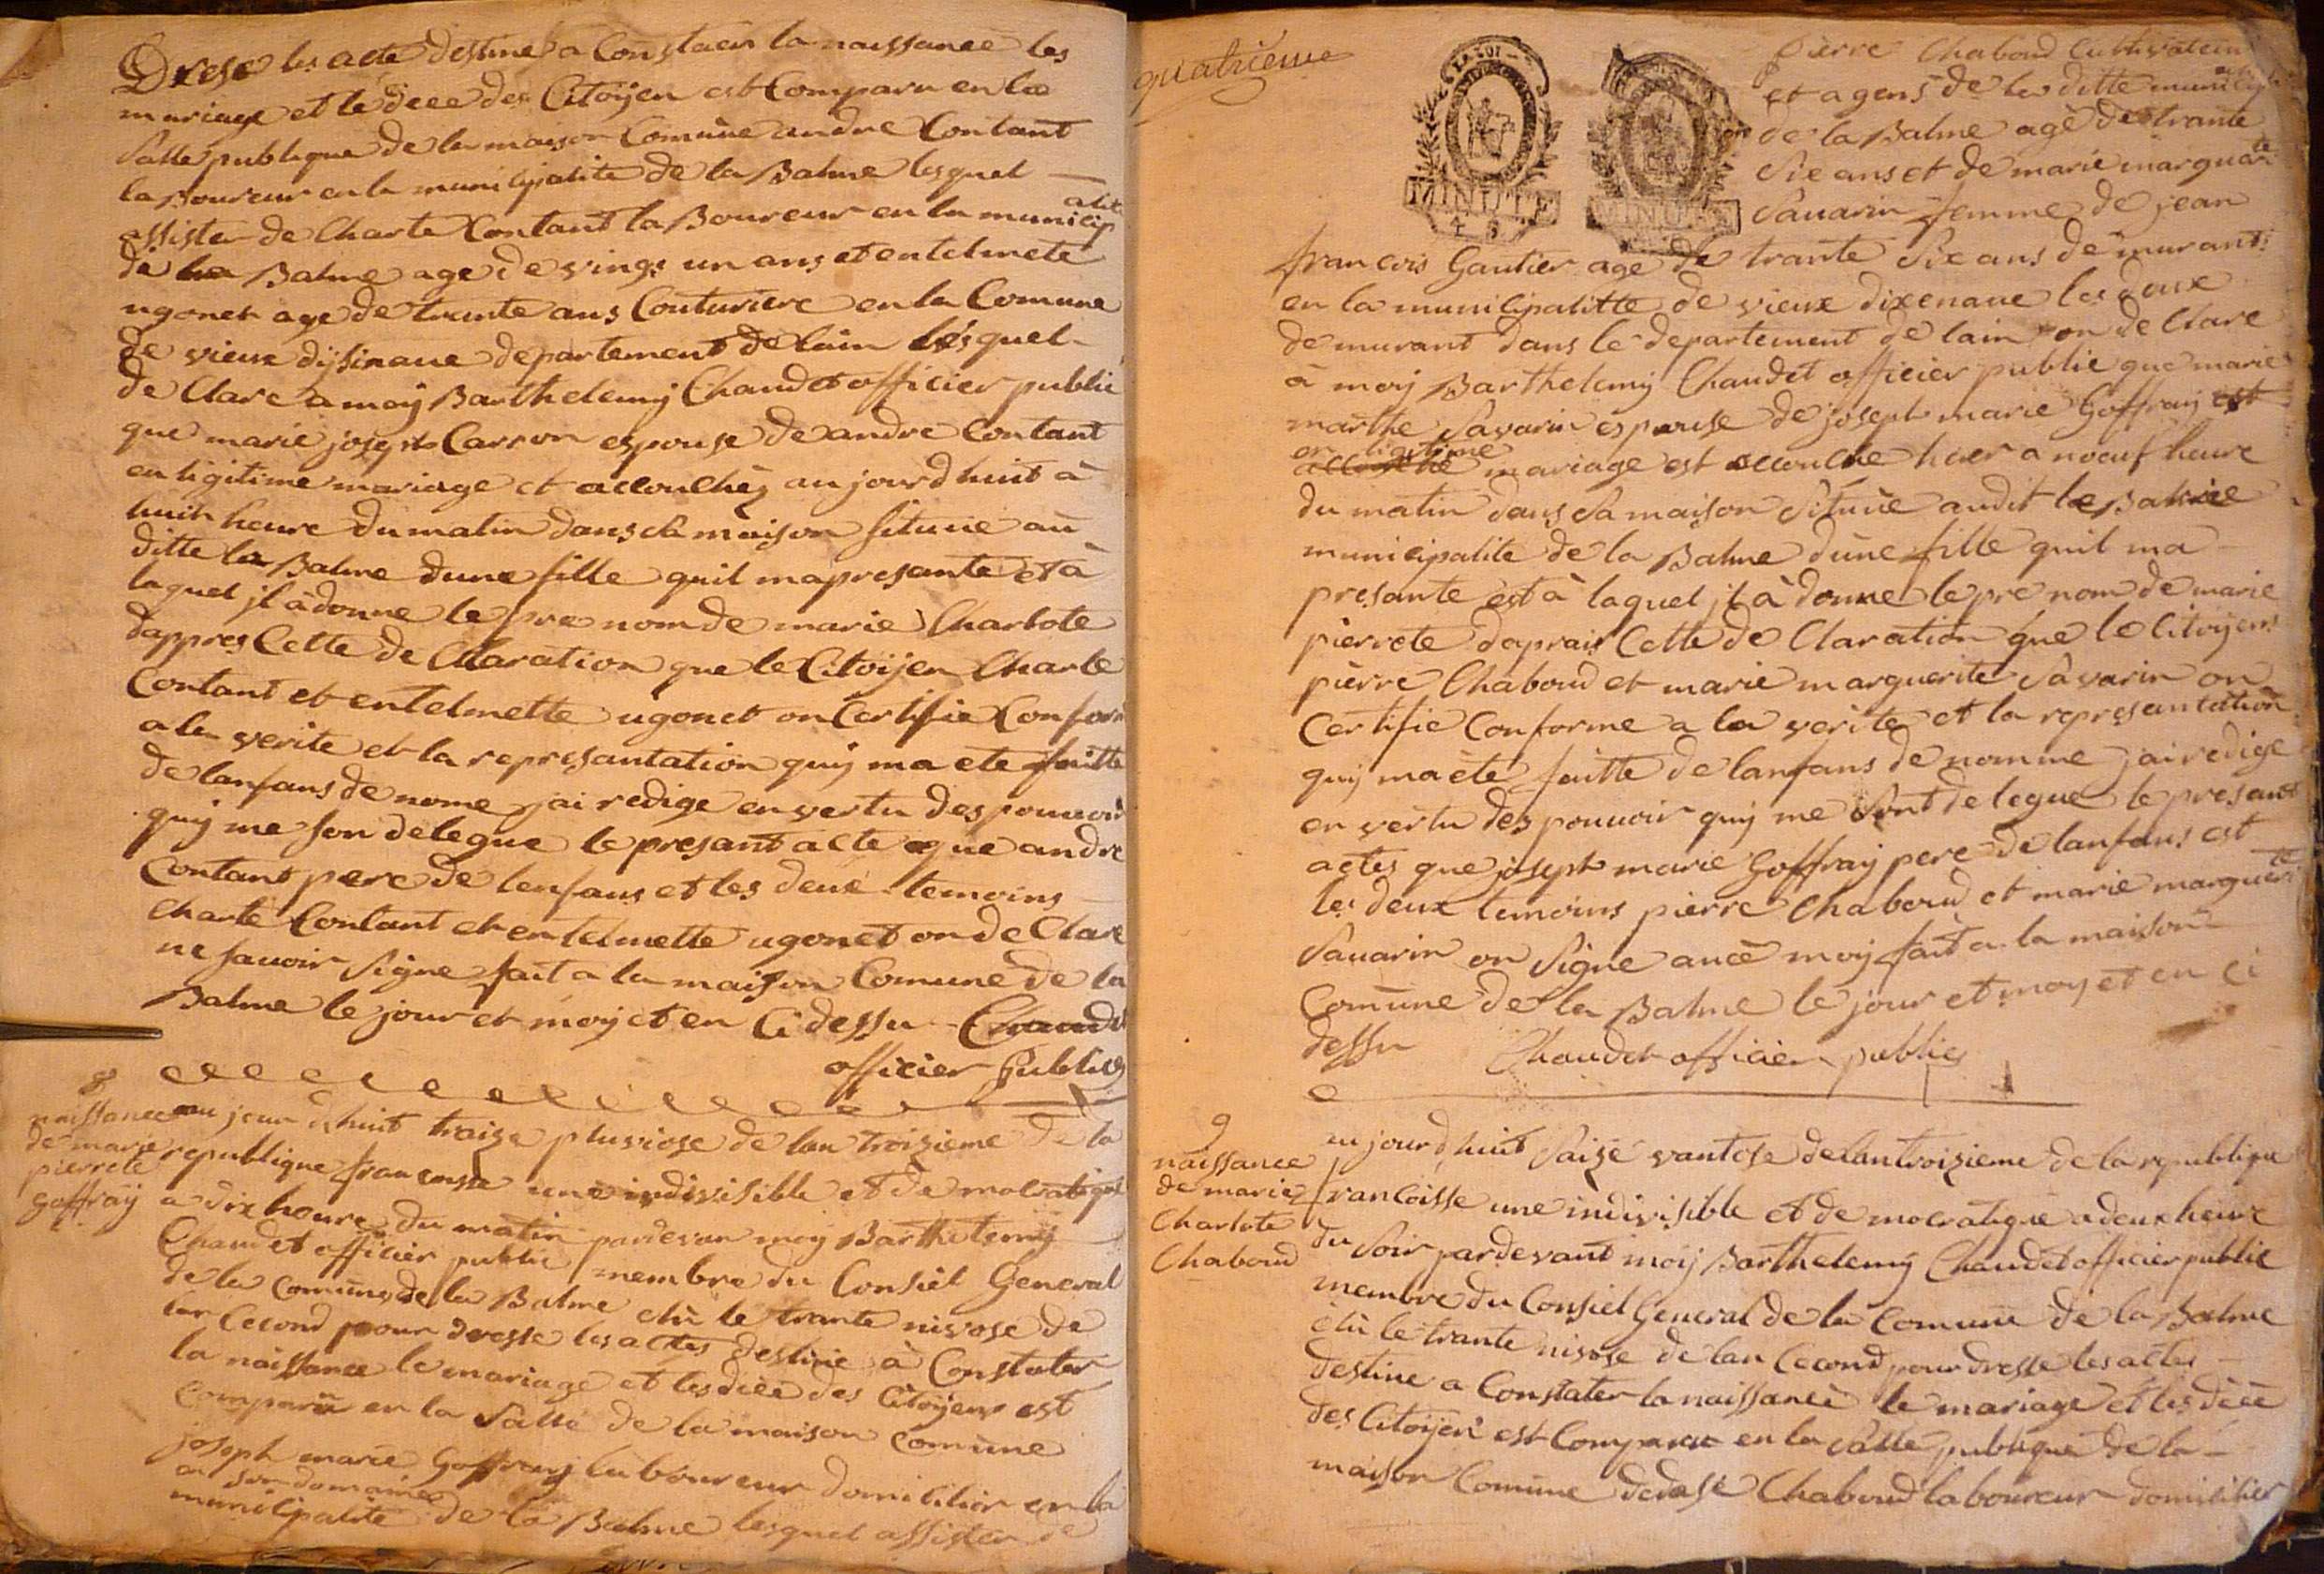 Drese les acte destine a Constaer la naissance les
mariage et le dece des Citoijen est Comparu en la
Salle publique de la maison Comune andre Contant
laBoureur en la municipalite de la Balme lesquel
assister de Charle Contant laBoureur en la municipalite
de la Balme age de vings un ans et entelmete
ugonet age de trante ans Couturiere en la Comune
de vieux dissinaue departement de lain lesquel
de Clare a moij Barthelemij Chaudet officier public
que marie joseph Carron espouse de andre Contant
en ligitime mariage et accouchéz aujourdhuit à
huit heure du matin dans sa maison situuie au
ditte la Balme dune fille quil ma presante et à
laquel jl à donne le pre nom de marie Charlote
dappres Cette de Claration que le Citoijen Charle
Contant et entelmette ugonet on Certifie Conform
a la verite et la represantation quij ma ete faitte
de lanfans de nome jai redige en vertu des pouuoir
quij me son delegue le presant acte que andre
Contant pere de lenfans et les deux temoins
Charle Contant et entelmette ugonet on de Clare
ne sauoir signe fait a la maison Comune de la
Balme le jour et moij et en Ci dessu Chaudet
officier publicq
8
naissance
de marie
pierrete
goffraij
au jourdhuit traize pluviose de lan troizieme de la
republique francoisse une indivisible et de mocratique
a dix houre du matin pardevan moy Barthelemij
Chaudet officier public membre du Consiel General
de la Comune de la Balme elu le trante nivose de
lan Cecond pour dresse les actes destine à Constater
la naissance le mariage et les dece des Citoijens est
Comparu en la Salle de la maison Comune
joseph marie Goffraij laboureur domicilier en la
en son domaine
municipalite de la Balme lesquel assister de
quatrieme
LA LOI
MINUTE
4 S
MINUTE
pierre Chaboud Cultivateur
et agens de la ditte municipalite
de la Balme agé de trante
Six ans et de marie marguarite
Sauarin femme de jean
francois Gautier age de trante Six ans demurant
en la municipalitte de vieux dixenaue les deux
demurant dans le departement de lain on de Clare
à moij Barthelemij Chaudet officier public que marie
marthe Savarin espouse de joseph marie Goffraij est
en ligitime
accouche mariage est accouche hier a noeuf heure
du matin dans Sa maison Situùe audit la Balme
municipalite de la Balme dune fille quil ma
presante est à laquel jl à donne le pre nom de marie
pierrete daprais Cette de Claration que le Citoijens
pierre Chaboud et marie marguerite Savarin on
Certifie Conforme a la verite et la represantation
quij ma ete faitte de lanfans de nomme jai redige
en vertu des pouuoir quij me Sont delegue le presant
actes que joseph marie Goffraij pere de lanfans est
les deux temoins pierre Chaboud et marie marguerite
Sauarin on Signe auec moij fait a la maison
Comune de la Balme le jour et moy et en Ci
dessu Chaudet officier publicq
9
naissance
de marie
Charlote
Chaboud
au jourdhuit Saize vantose de lan troizieme de la republique
francoisse une indivisible et de mocratique a deux heure
du Soir pardevant moij Barthelemij Chaudet officier public
membre du Consiel General de la Comune de la Balme
élù le trante nivose de lan Cecond pour dresse les actes
destine a Constater la naissance le mariage et les dece
des Citoijen est Comparu en la Salle publique de la
maison Comune Chaboud laboureur domicilier